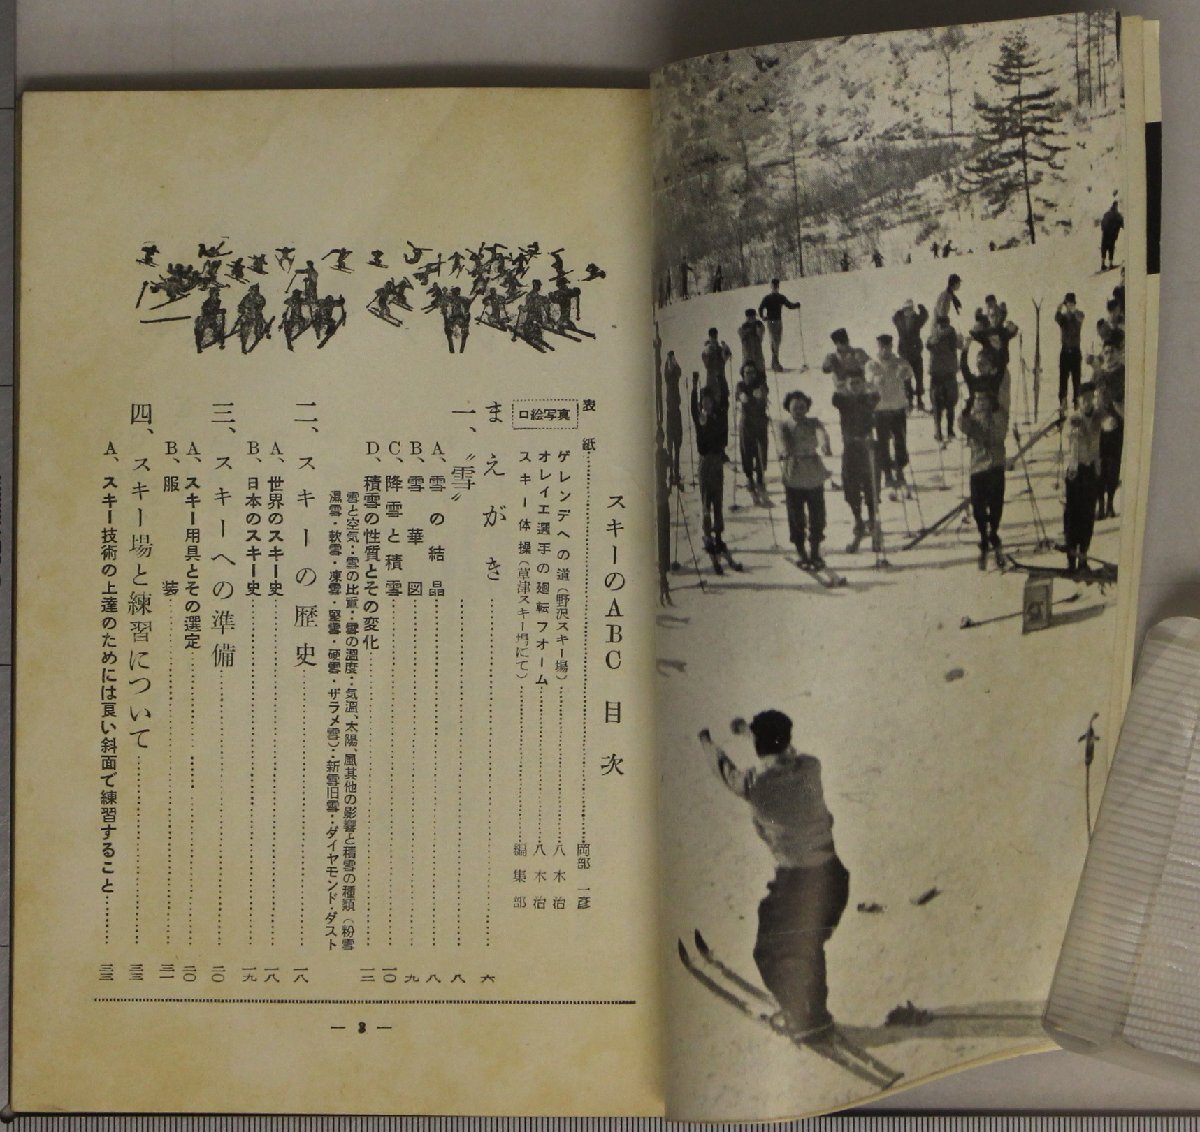 スキーのABC 目次
表紙……岡部一彦
口絵写真
ゲレンデへの道（野沢スキー場）……八木治
オレイエ選手の廻転フォーム……八木治
スキー体操（草津スキー場にて）……編集部
まえがき……六
一、〝雪〟……八
A、雪の結晶……八
B、雪華図……九
C、降雪と積雪……一〇
D、積雪の性質とその変化……一二
雪と空気・雪の比重・雪の温度・気温、太陽、風其他の影響と積雪の種類（粉雪
濕雪・軟雪・凍雪・堅雪・硬雪・ザラメ雪）・新雪旧雪・ダイヤモンド・ダスト
二、スキーの歴史……一八
A、世界のスキー史……一八
B、日本のスキー史……一九
三、スキーへの準備……二〇
A、スキー用具とその選定……二〇
B、服装……三一
四、スキー場と練習について……三三
A、スキー技術の上達のためには良い斜面で練習すること……三三
— 3 —